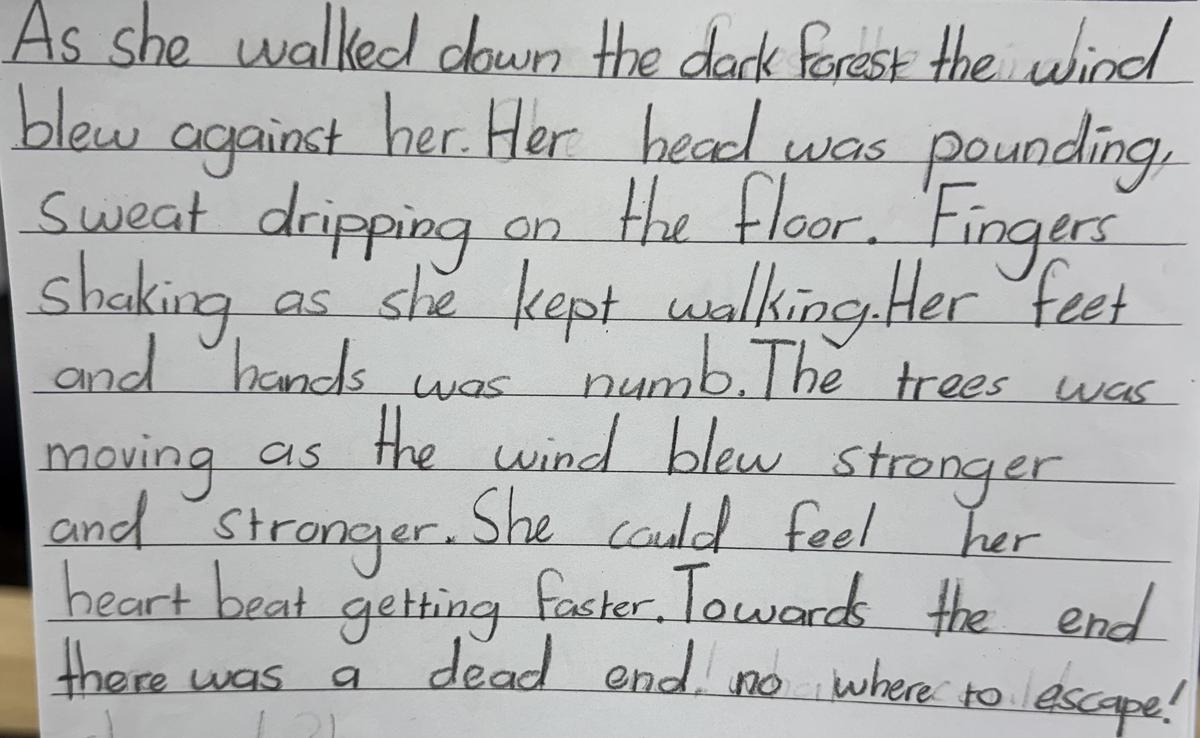 As she walked down the dark forest the wind
blew against her. Her head was pounding,
sweat dripping on the floor. Fingers
shaking as she kept walking. Her feet
and hands was numb. The trees was
moving as the wind blew stronger
and stronger. She could feel her
heart beat getting faster. Towards the end
there was a dead end, no where to escape!